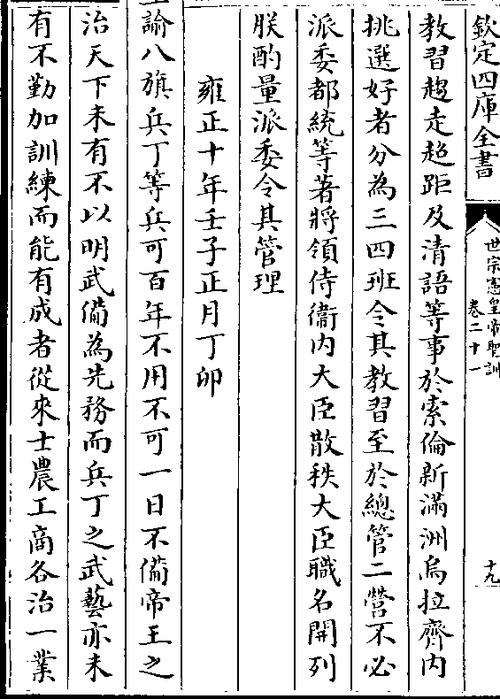 欽定四庫全書
世宗憲皇帝聖訓
卷二十一
十九
教習趨走超距及清語等事於索倫新滿洲烏拉齊内
挑選好者分為三四班令其教習至於總管二營不必
派委都統等著將領侍衛内大臣散秩大臣職名開列
朕酌量派委令其管理
雍正十年壬子正月丁卯
上諭八旗兵丁等兵可百年不用不可一日不備帝王之
治天下未有不以明武備為先務而兵丁之武藝亦未
有不勤加訓練而能有成者從來士農工商各治一業